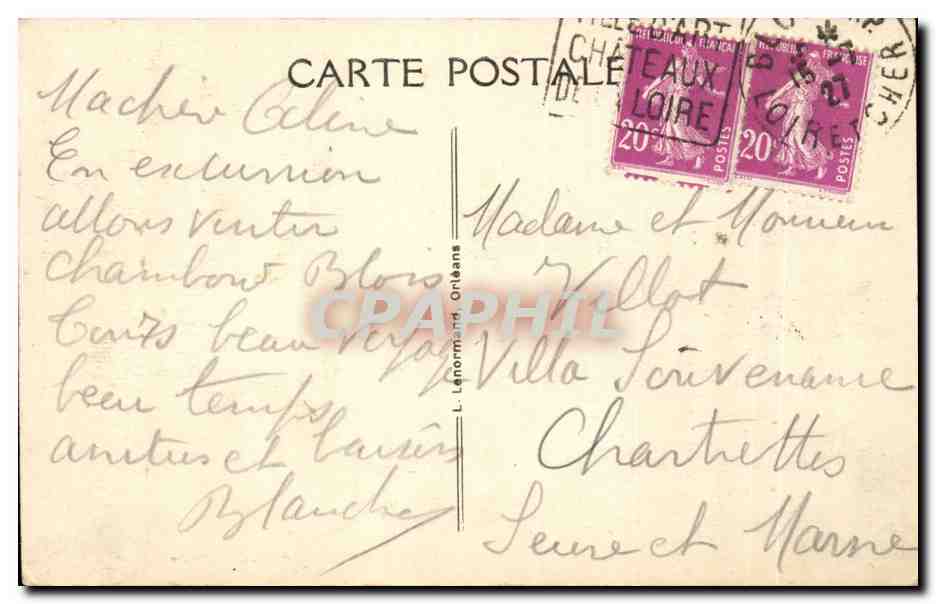 CARTE POSTALE
VILLE D'ART
CHÂTEAUX
DE LA LOIRE
LOIR ET CHER
REPUBLIQUE FRANÇAISE
20c
POSTES
REPUBLIQUE FRANÇAISE
20c
POSTES
Ma chère Céline
En excursion
allons visiter
Chambord Blois
Tours beau voyage
beau temps
amitiés et baisers
Blanche
L. Lenormand, Orléans
CPARHIL
Madame et Monsieur
Villot
Villa Souvenance
Chartrettes
Seine et Marne